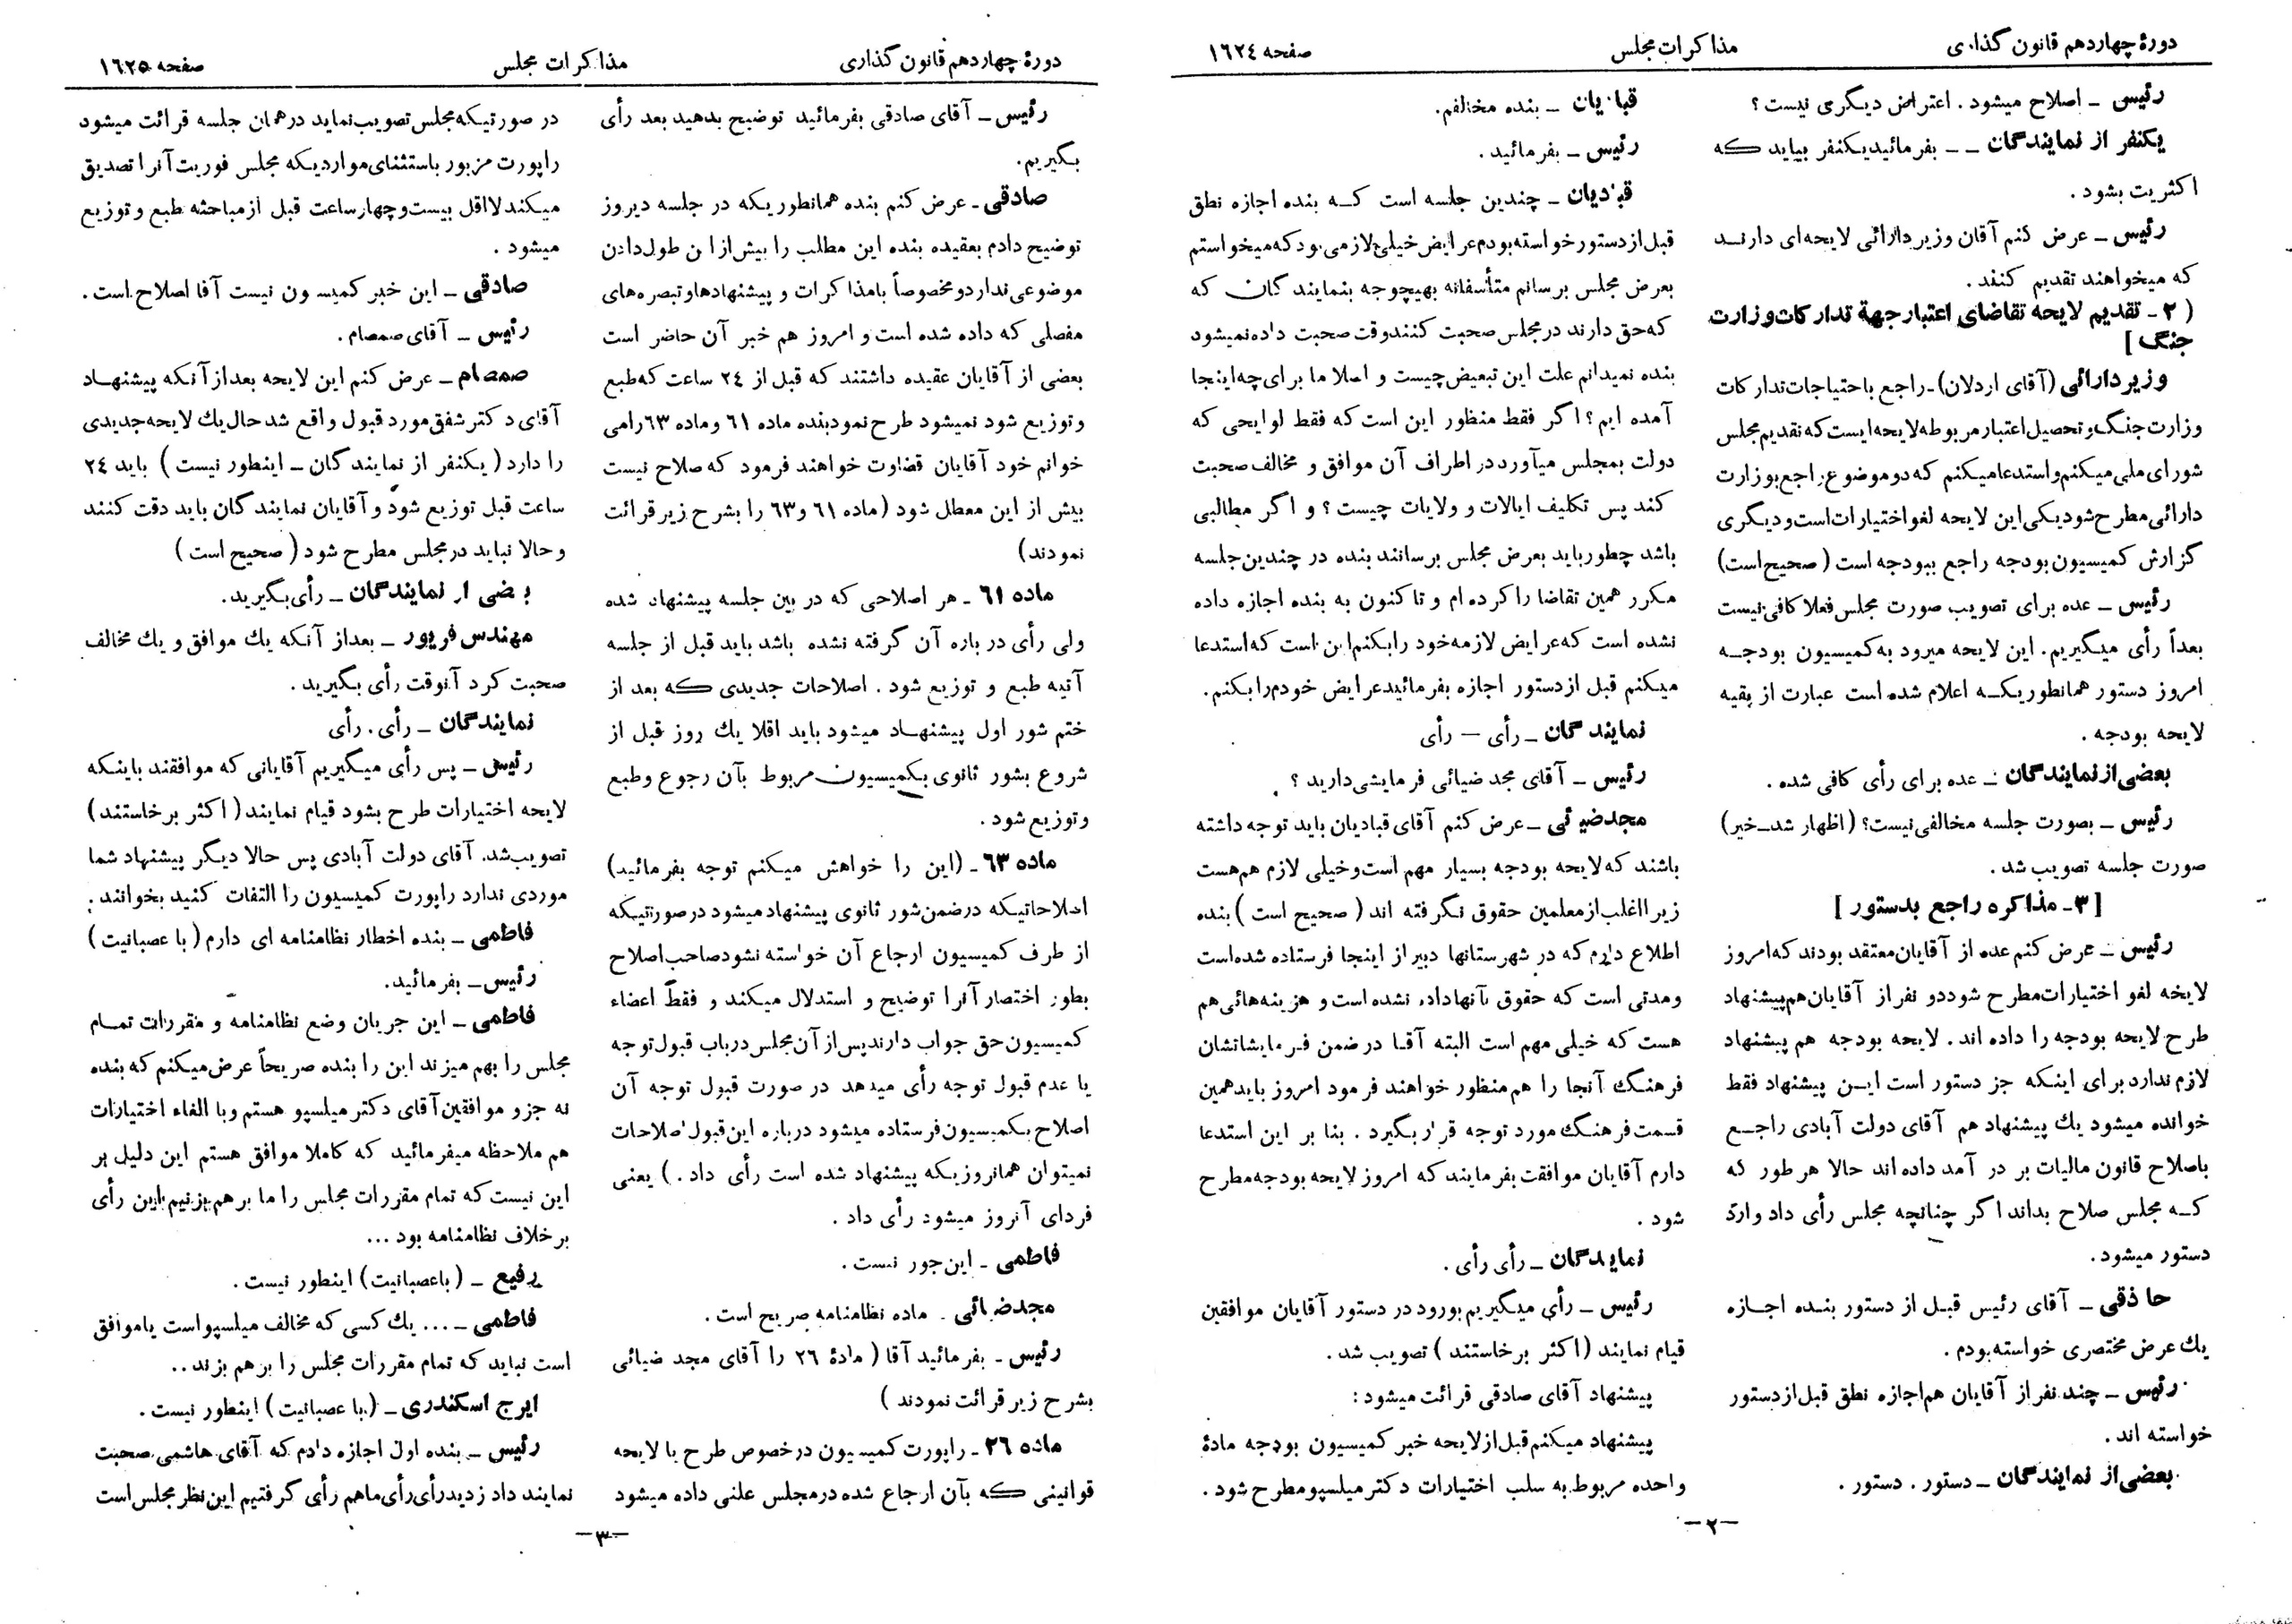 دورهٔ چهاردهم قانون گذاری
مذاکرات مجلس
صفحه ۱٦۲٤
رئیس ـ اصلاح میشود . اعتراض دیگری نیست ؟
یکنفر از نمایندگان ـ ـ بفرمائیدیکنفر بیاید که
اکثریت بشود .
رئیس ـ عرض کنم آقان وزیر دارائی لایحه‌ای دارند
که میخواهند تقدیم کنند .
( ۲ ـ تقدیم لایحه تقاضای اعتبار جهة تدارکات وزارت
جنگ ]
وزیر دارائی (آقای اردلان) ـ راجع باحتیاجات تدارکات
وزارت جنگ و تحصیل اعتبار مربوطه لایحه ایست که تقدیم مجلس
شورای ملی میکنم و استدعا میکنم که دو موضوع راجع بوزارت
دارائی مطرح شود یکی این لایحه لغو اختیارات است و دیگری
گزارش کمیسیون بودجه راجع ببودجه است ( صحیح است)
رئیس ـ عده برای تصویب صورت مجلس فعلا کافی نیست
بعداً رأی میگیریم. این لایحه میرود به کمیسیون بودجه
امروز دستور همانطوریکه اعلام شده است عبارت از بقیه
لایحه بودجه .
بعضی از نمایندگان ـ عده برای رأی کافی شده .
رئیس ـ بصورت جلسه مخالفی نیست؟ (اظهار شد ـ خیر)
صورت جلسه تصویب شد .
[ ۳ ـ مذاکره راجع بدستور ]
رئیس ـ عرض کنم عده از آقایان معتقد بودند که امروز
لایخه لغو اختیارات مطرح شود دو نفر از آقایان هم پیشنهاد
طرح لایحه بودجه را داده اند . لایحه بودجه هم پیشنهاد
لازم ندارد برای اینکه جز دستور است این پیشنهاد فقط
خوانده میشود یك پیشنهاد هم آقای دولت آبادی راجع
باصلاح قانون مالیات بر در آمد داده اند حالا هر طور که
که مجلس صلاح بداند اگر چنانچه مجلس رأی داد وارد
دستور میشود.
حاذقی ـ آقای رئیس قبل از دستور بنده اجازه
یك عرض مختصری خواسته بودم .
رئیس ـ چند نفر از آقایان هم اجازه نطق قبل از دستور
خواسته اند .
بعضی از نمایندگان ـ دستور . دستور .
قبادیان ـ بنده مخالفم.
رئیس ـ بفرمائید .
قبادیان ـ چندین جلسه است که بنده اجازه نطق
قبل از دستور خواسته بودم عرایض خیلی لازمی بود که میخواستم
بعرض مجلس برسانم متأسفانه بهیچوجه بنمایندگان که
که حق دارند در مجلس صحبت کنند وقت صحبت داده نمیشود
بنده نمیدانم علت این تبعیض چیست و اصلا ما برای چه اینجا
آمده ایم ؟ اگر فقط منظور این است که فقط لوایحی که
دولت بمجلس میآورد در اطراف آن موافق و مخالف صحبت
کند پس تکلیف ایالات و ولایات چیست ؟ و اگر مطالبی
باشد چطور باید بعرض مجلس برسانند بنده در چندین جلسه
مکرر همین تقاضا را کرده ام و تا کنون به بنده اجازه داده
نشده است که عرایض لازمه خود را بکنم این است که استدعا
میکنم قبل از دستور اجازه بفرمائید عرایض خودم را بکنم.
نمایندگان ـ رأی — رأی
رئیس ـ آقای مجد ضیائی فرمایشی دارید ؟
مجد ضیائی ـ عرض کنم آقای قبادیان باید توجه داشته
باشند که لایحه بودجه بسیار مهم است و خیلی لازم هم هست
زیرا اغلب از معلمین حقوق نگرفته اند ( صحیح است ) بنده
اطلاع دارم که در شهرستانها دبیر از اینجا فرستاده شده است
و مدتی است که حقوق بآنها داده نشده است و هزینه هائی هم
هست که خیلی مهم است البته آقا در ضمن فرمایشاتشان
فرهنگ آنجا را هم منظور خواهند فرمود امروز باید همین
قسمت فرهنگ مورد توجه قرار بگیرد . بنا بر این استدعا
دارم آقایان موافقت بفرمایند که امروز لایحه بودجه مطرح
شود .
نمایندگان ـ رأی رأی .
رئیس ـ رأی میگیریم بورود در دستور آقایان موافقین
قیام نمایند (اکثر برخاستند ) تصویب شد .
پیشنهاد آقای صادقی قرائت میشود :
پیشنهاد میکنم قبل از لایحه خبر کمیسیون بودجه مادهٔ
واحده مربوط به سلب اختیارات دکتر میلسپو مطرح شود .
—۲—
دورهٔ چهاردهم قانون گذاری
مذاکرات مجلس
صفحه ۱٦۲٥
رئیس ـ آقای صادقی بفرمائید توضیح بدهید بعد رأی
بگیریم.
صادقی ـ عرض کنم بنده همانطوریکه در جلسه دیروز
توضیح دادم بعقیده بنده این مطلب را بیش از این طول دادن
موضوعی ندارد و مخصوصاً با مذاکرات و پیشنهادها و تبصره های
مفصلی که داده شده است و امروز هم خبر آن حاضر است
بعضی از آقایان عقیده داشتند که قبل از ۲٤ ساعت که طبع
و توزیع شود نمیشود طرح نمود بنده ماده ٦۱ و ماده ٦۳ را می
خوانم خود آقایان قضاوت خواهند فرمود که صلاح نیست
بیش از این معطل شود (ماده ٦۱ و ٦۳ را بشرح زیر قرائت
نمودند)
ماده ٦۱ ـ هر اصلاحی که در بین جلسه پیشنهاد شده
ولی رأی در باره آن گرفته نشده باشد باید قبل از جلسه
آتیه طبع و توزیع شود . اصلاحات جدیدی که بعد از
ختم شور اول پیشنهاد میشود باید اقلا یك روز قبل از
شروع بشور ثانوی بکمیسیون مربوط بآن رجوع و طبع
و توزیع شود .
ماده ٦۳ ـ (این را خواهش میکنم توجه بفرمائید)
اصلاحاتیکه در ضمن شور ثانوی پیشنهاد میشود در صورتیکه
از طرف کمیسیون ارجاع آن خواسته نشود صاحب اصلاح
بطور اختصار آنرا توضیح و استدلال میکند و فقط اعضاء
کمیسیون حق جواب دارند پس از آن مجلس در باب قبول توجه
یا عدم قبول توجه رأی میدهد در صورت قبول توجه آن
اصلاح بکمیسیون فرستاده میشود درباره این قبول اصلاحات
نمیتوان همانروزیکه پیشنهاد شده است رأی داد . ) یعنی
فردای آنروز میشود رأی داد .
فاطمی ـ این جور نیست .
مجد ضیائی ـ ماده نظامنامه صریح است .
رئیس ـ بفرمائید آقا ( مادهٔ ۲٦ را آقای مجد ضیائی
بشرح زیر قرائت نمودند )
ماده ۲٦ ـ راپورت کمیسیون در خصوص طرح یا لایحه
قوانینی که بآن ارجاع شده در مجلس علنی داده میشود
در صورتیکه مجلس تصویب نماید در همان جلسه قرائت میشود
راپورت مزبور باستثنای مواردیکه مجلس فوریت آنرا تصدیق
میکند لااقل بیست و چهار ساعت قبل از مباحثه طبع و توزیع
میشود .
صادقی ـ این خبر کمیسیون نیست آقا اصلاح است .
رئیس ـ آقای صمصام .
صمصام ـ عرض کنم این لایحه بعد از آنکه پیشنهاد
آقای دکتر شفق مورد قبول واقع شد حال یك لایحه جدیدی
را دارد ( یکنفر از نمایندگان ـ اینطور نیست ) باید ۲٤
ساعت قبل توزیع شود و آقایان نمایندگان باید دقت کنند
و حالا نباید در مجلس مطرح شود ( صحیح است )
بعضی از نمایندگان ـ رأی بگیرید.
مهندس فریور ـ بعد از آنکه یك موافق و یك مخالف
صحبت کرد آنوقت رأی بگیرید .
نمایندگان ـ رأی . رأی
رئیس ـ پس رأی میگیریم آقایانی که موافقند باینکه
لایحه اختیارات طرح بشود قیام نمایند ( اکثر برخاستند )
تصویب شد. آقای دولت آبادی پس حالا دیگر پیشنهاد شما
موردی ندارد راپورت کمیسیون را التفات کنید بخوانند .
فاطمی ـ بنده اخطار نظامنامه ای دارم ( با عصبانیت )
رئیس ـ بفرمائید.
فاطمی ـ این جریان وضع نظامنامه و مقررات تمام
مجلس را بهم میزند این را بنده صریحاً عرض میکنم که بنده
نه جزو موافقین آقای دکتر میلسپو هستم و با الغاء اختیارات
هم ملاحظه میفرمائید که کاملا موافق هستم این دلیل بر
این نیست که تمام مقررات مجلس را ما بر هم بزنیم این رأی
بر خلاف نظامنامه بود ...
رفیع ـ (باعصبانیت) اینطور نیست .
فاطمی ـ ... یك کسی که مخالف میلسپو است یا موافق
است نباید که تمام مقررات مجلس را بر هم بزند ..
ایرج اسکندری ـ (با عصبانیت) اینطور نیست .
رئیس ـ بنده اول اجازه دادم که آقای هاشمی صحبت
نمایند داد زدید رأی رأی ما هم رأی گرفتیم این نظر مجلس است
—۳—